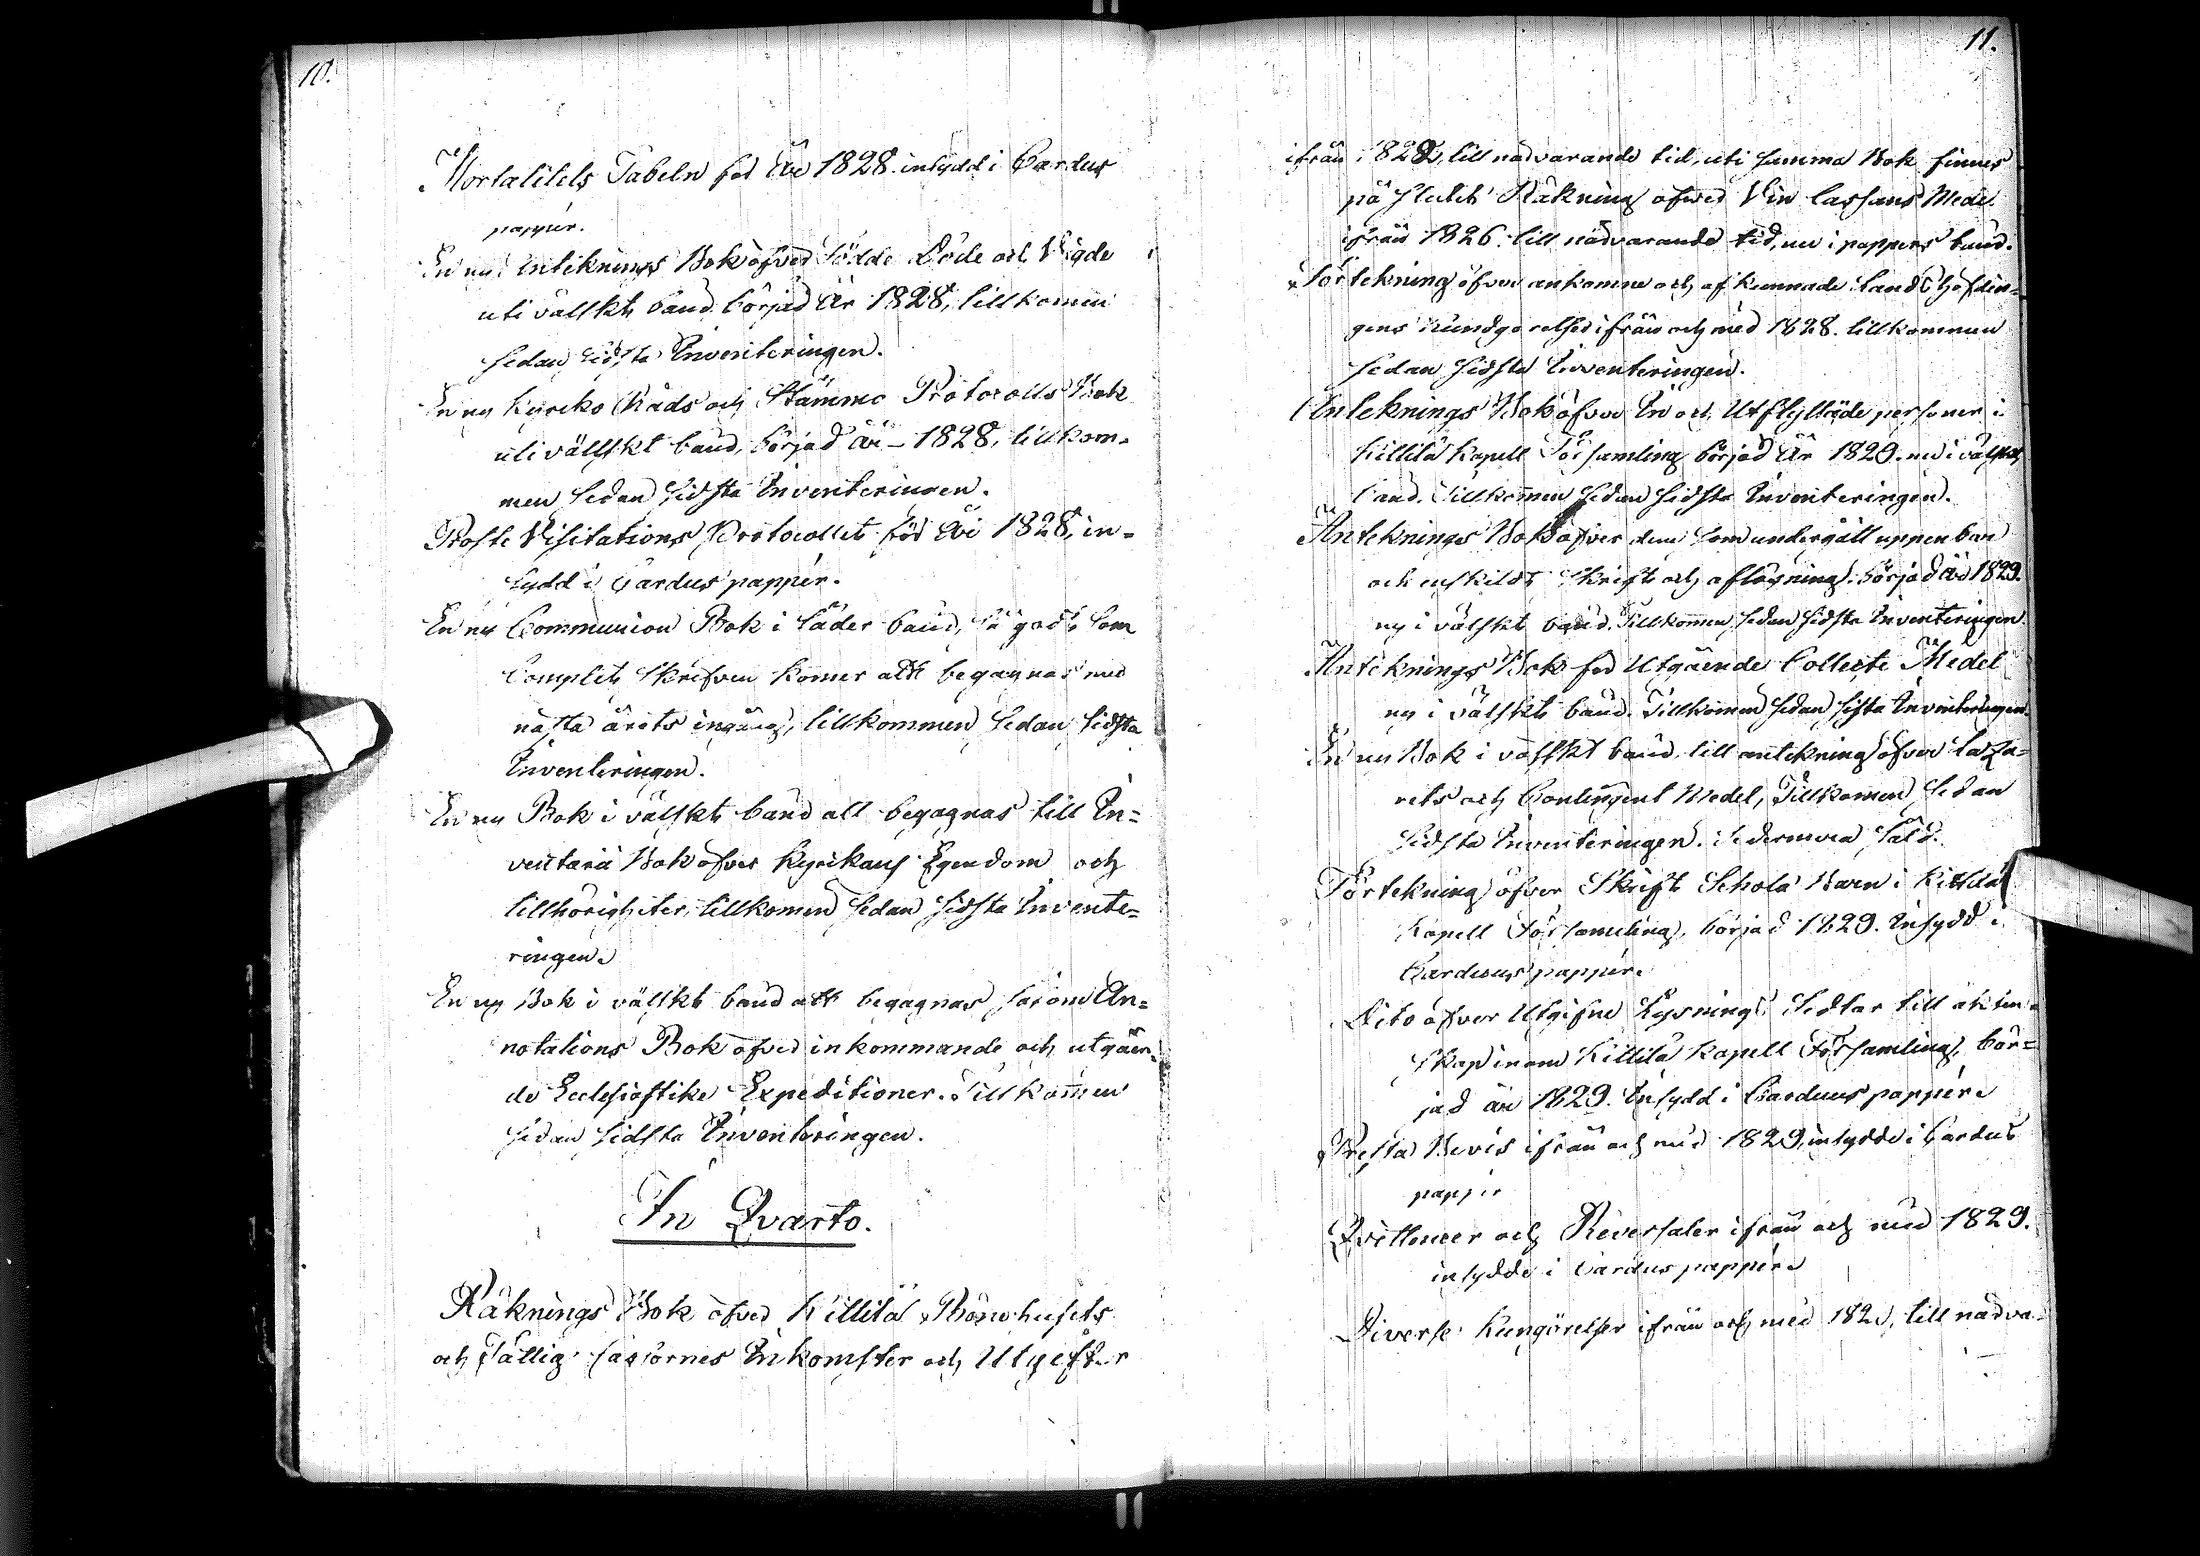 10.
Mortalitets Tabeln för År 1828. insydd i Cardus
papper.
En ny Antecknings Bok öfver Födde Döde och Vigde
uti välskt band börjad År 1828, tillkomen
sedan sidsta Inventeringen.
En ny Kyrcko Råds och Stämmo Protocolls Bok
uti välskt band, börjad År 1828, tillkom-
men sedan sidsta Inventeringen.
Prosts Visitations Protocollet för År 1828, in-
sydd i Cardus papper.
En ny Communion Bok i Läder band, så godt som
Complett skrifven komer att begagnas med
nästa årets ingång, tillkommen sedan sidsta
Inventeringen.
En ny Bok i välskt band att begagnas till In-
ventarii Bok öfver Kyrkans Egendom och
tillhörigheter, tillkomen sedan sidsta Invente-
ringen.
En ny Bok i välskt band att begagnas såsom An-
notations Bok öfver inkommande och utgåen-
de Ecclesiastike Expeditioner. Tillkommen
sedan sidsta Inventeringen.
In Qvarto.
Räknings Bok öfver Killilä Bönehusets
och Fattig cassornes Inkomster och Utgifter
11.
ifrån 1822, till närvarande tid, uti samma Bok finnes
på slutet Räkning öfver Vin Cassans Medel
ifrån 1826. till närvarande tid, nu i pappers band.
Förtekning öfver ankomne och afkunnade Landshöfdin-
gens Kundgörelser ifrån och med 1828. tillkommen
sedan sidsta Inventeringen.
Anteknings Bok öfver In och Utflyttade personer i
Killilä Kapell Församling börjad År 1829. ny i välskt
band. Tillkommen sedan sidsta Inventeringen.
Anteknings Bok öfver dem som undergått uppenbar
och enskildt Skrift och aflösning, börjad År 1829.
ny i välskt band. Tillkommen sedan sidsta Inventeringen.
Anteknings Bok för Utgående Collecte Medel
ny i välskt band. Tillkommen sedan sista Inventeringen.
En ny Bok i välskt band till antekning öfver Laza-
rets och Contingent Medel, Tillkommen sedan
sidsta Inventeringen. sedermera såld.
Förtekning öfver Skrift Schola Barn i Killilä
Kapell Församling, börjad 1829. Insydd i
Carduus papper.
Dito öfver Utgifne Lysnings Sedlar till äkten-
skap inom Killilä Kapell Församling, bör-
jad År 1829. Insydd i Carduus papper.
Presta Bevis ifrån och med 1829, insydde i Cardus
papper
Qvittencer och Reversaler ifrån och med 1829.
insydde i Cardus papper.
Diverse Kungörelser ifrån och med 182 , till närva-